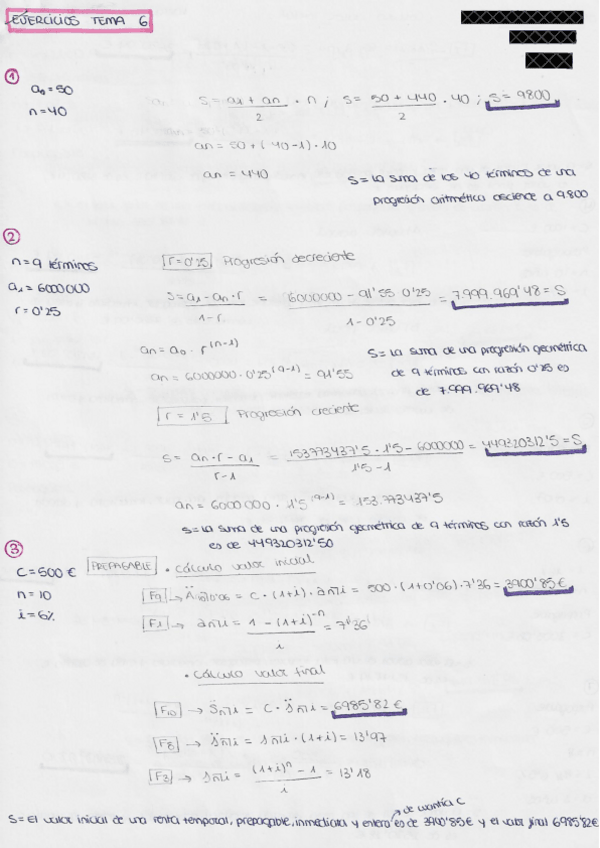 EJERCICIOS TEMA 6
①
a₀ = 50
n = 40
S = a₁ + aₙ / 2 · n ; S = 50 + 440 / 2 · 40 ; S = 9800
aₙ = 50 + (40-1) · 10
aₙ = 440
S = La suma de los 40 términos de una
progresión aritmética asciende a 9.800
②
n = 9 términos
a₁ = 6000000
r = 0'25
r = 0'25 Progresión decreciente
S = a₁ - aₙ · r / 1 - r = 6000000 - 91'55 · 0'25 / 1 - 0'25 = 7.999.969'48 = S
aₙ = a₀ · r⁽ⁿ⁻¹⁾
aₙ = 6000000 · 0'25⁽⁹⁻¹⁾ = 91'55
S = La suma de una progresión geométrica
de 9 términos con razón 0'25 es
de 7.999.969'48
r = 1'5 Progresión creciente
S = aₙ · r - a₁ / r - 1 = 153773437'5 · 1'5 - 6000000 / 1'5 - 1 = 449320312'5 = S
aₙ = 6000000 · 1'5⁽⁹⁻¹⁾ = 153.773437'5
S = La suma de una progresión geométrica de 9 términos con razón 1'5
es de 449320312'50
③
C = 500 €
n = 10
i = 6%
PREPAGABLE · Cálculo valor inicial
F9 → Ä₁₀⌉0'06 = C · (1+i) · aₙ⌉i = 500 · (1+0'06) · 7'36 = 3900'85 €
F1 → aₙ⌉i = 1 - (1+i)⁻ⁿ / i = 7'36
· Cálculo valor final
F10 → S̈ₙ⌉i = C · s̈ₙ⌉i = 6985'82 €
F8 → s̈ₙ⌉i = sₙ⌉i · (1+i) = 13'97
F3 → sₙ⌉i = (1+i)ⁿ - 1 / i = 13'18
de cuantía C
S = El valor inicial de una renta temporal, prepagable, inmediata y entera es de 3900'85 € y el valor final 6985'82 €